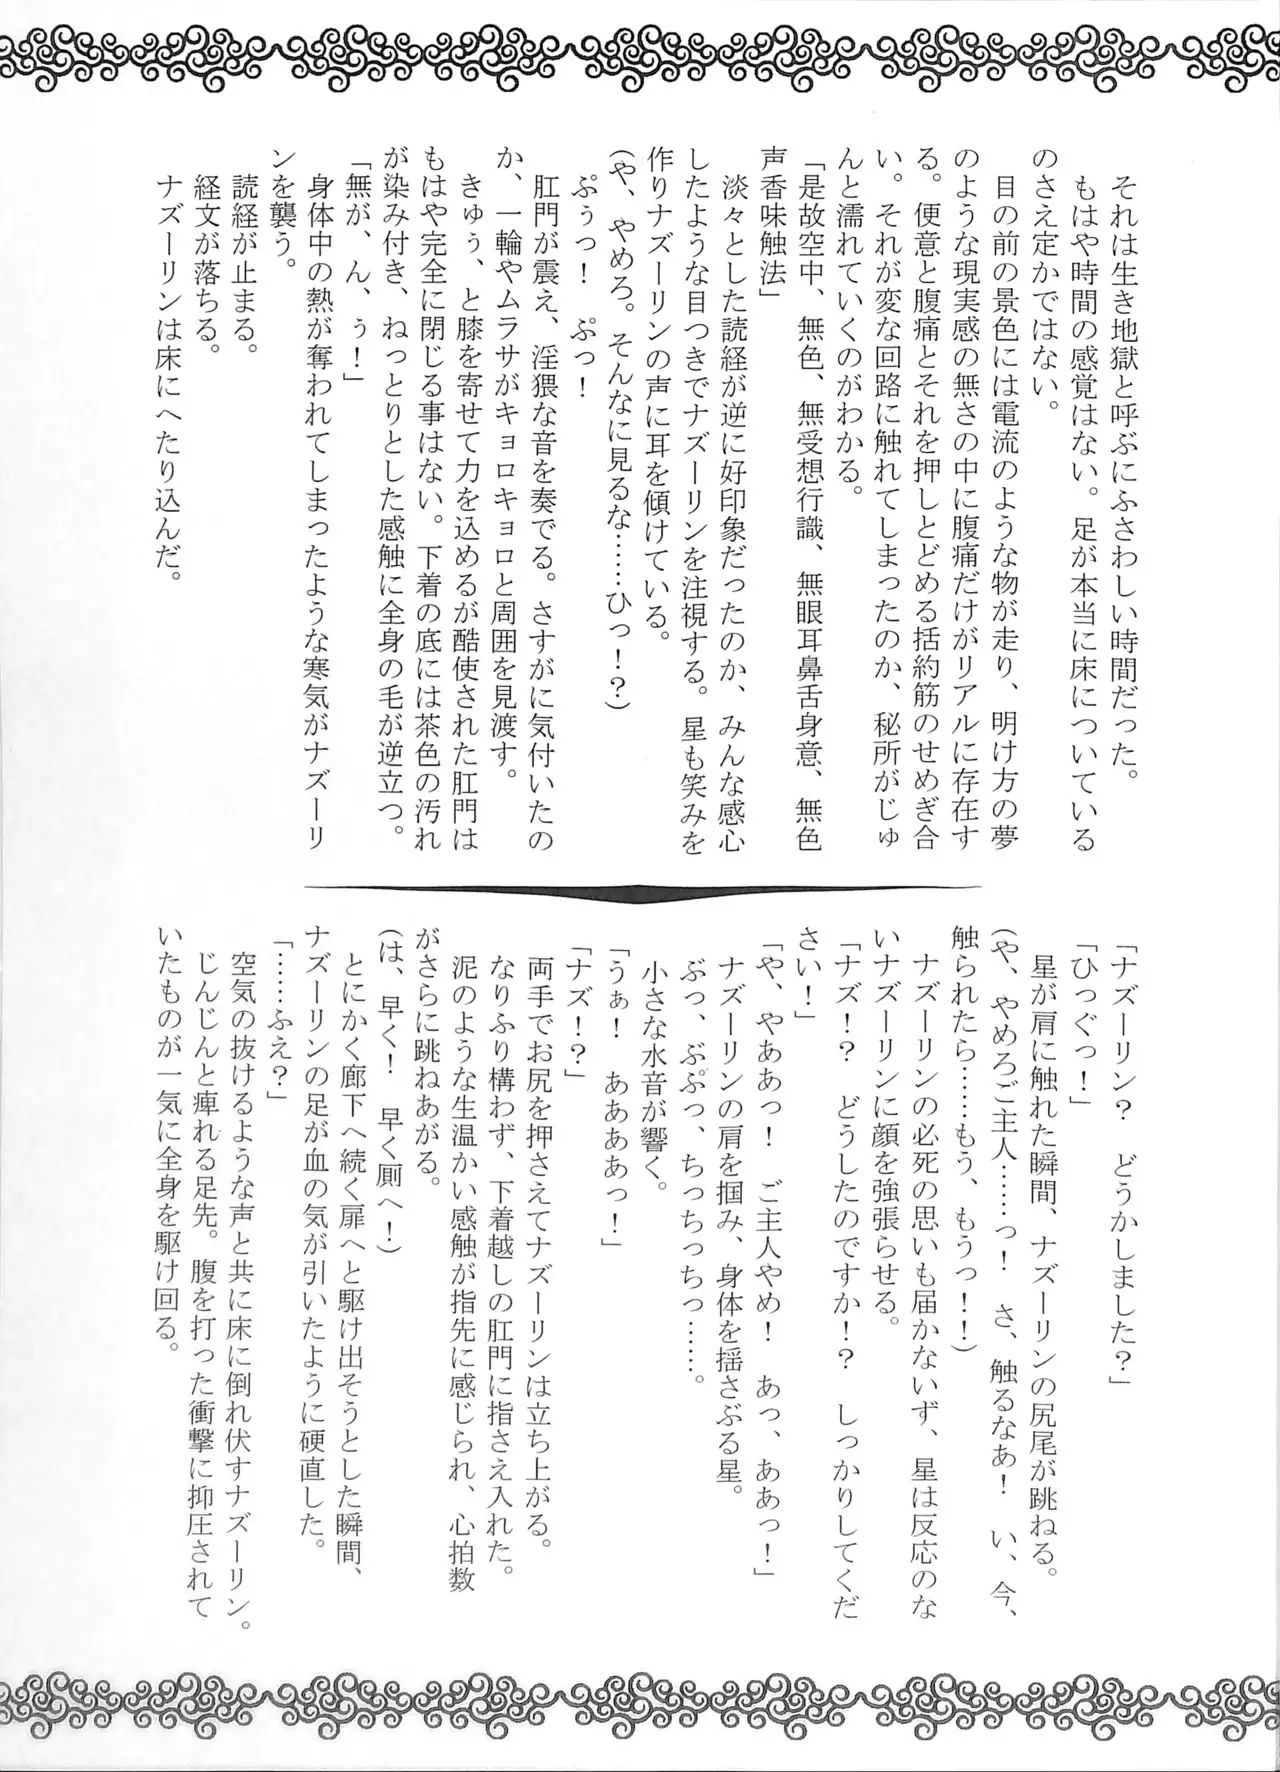 それは生き地獄と呼ぶにふさわしい時間だった。
もはや時間の感覚はない。足が本当に床についている
のさえ定かではない。
目の前の景色には電流のような物が走り、明け方の夢
のような現実感の無さの中に腹痛だけがリアルに存在す
る。便意と腹痛とそれを押しとどめる括約筋のせめぎ合
い。それが変な回路に触れてしまったのか、秘所がじゅ
んと濡れていくのがわかる。
「是故空中、無色、無受想行識、無眼耳鼻舌身意、無色
声香味触法」
淡々とした読経が逆に好印象だったのか、みんな感心
したような目つきでナズーリンを注視する。星も笑みを
作りナズーリンの声に耳を傾けている。
(や、やめろ。そんなに見るな……ひっ！？)
ぷぅっ！　ぷっ！
肛門が震え、淫猥な音を奏でる。さすがに気付いたの
か、一輪やムラサがキョロキョロと周囲を見渡す。
きゅぅ、と膝を寄せて力を込めるが酷使された肛門は
もはや完全に閉じる事はない。下着の底には茶色の汚れ
が染み付き、ねっとりとした感触に全身の毛が逆立つ。
「無が、ん、ぅ！」
身体中の熱が奪われてしまったような寒気がナズーリ
ンを襲う。
読経が止まる。
経文が落ちる。
ナズーリンは床にへたり込んだ。
「ナズーリン？　どうかしました？」
「ひっぐっ！」
星が肩に触れた瞬間、ナズーリンの尻尾が跳ねる。
(や、やめろご主人……っ！　さ、触るなあ！　い、今、
触られたら……もう、もうっ！！)
ナズーリンの必死の思いも届かないず、星は反応のな
いナズーリンに顔を強張らせる。
「ナズ！？　どうしたのですか！？　しっかりしてくだ
さい！」
「や、やああっ！　ご主人やめ！　あっ、ああっ！」
ナズーリンの肩を掴み、身体を揺さぶる星。
ぶっ、ぶぷっ、ちっちっちっ……。
小さな水音が響く。
「うぁ！　ああああっ！」
「ナズ！？」
両手でお尻を押さえてナズーリンは立ち上がる。
なりふり構わず、下着越しの肛門に指さえ入れた。
泥のような生温かい感触が指先に感じられ、心拍数
がさらに跳ねあがる。
(は、早く！　早く厠へ！)
とにかく廊下へ続く扉へと駆け出そうとした瞬間、
ナズーリンの足が血の気が引いたように硬直した。
「……ふえ？」
空気の抜けるような声と共に床に倒れ伏すナズーリン。
じんじんと痺れる足先。腹を打った衝撃に抑圧されて
いたものが一気に全身を駆け回る。